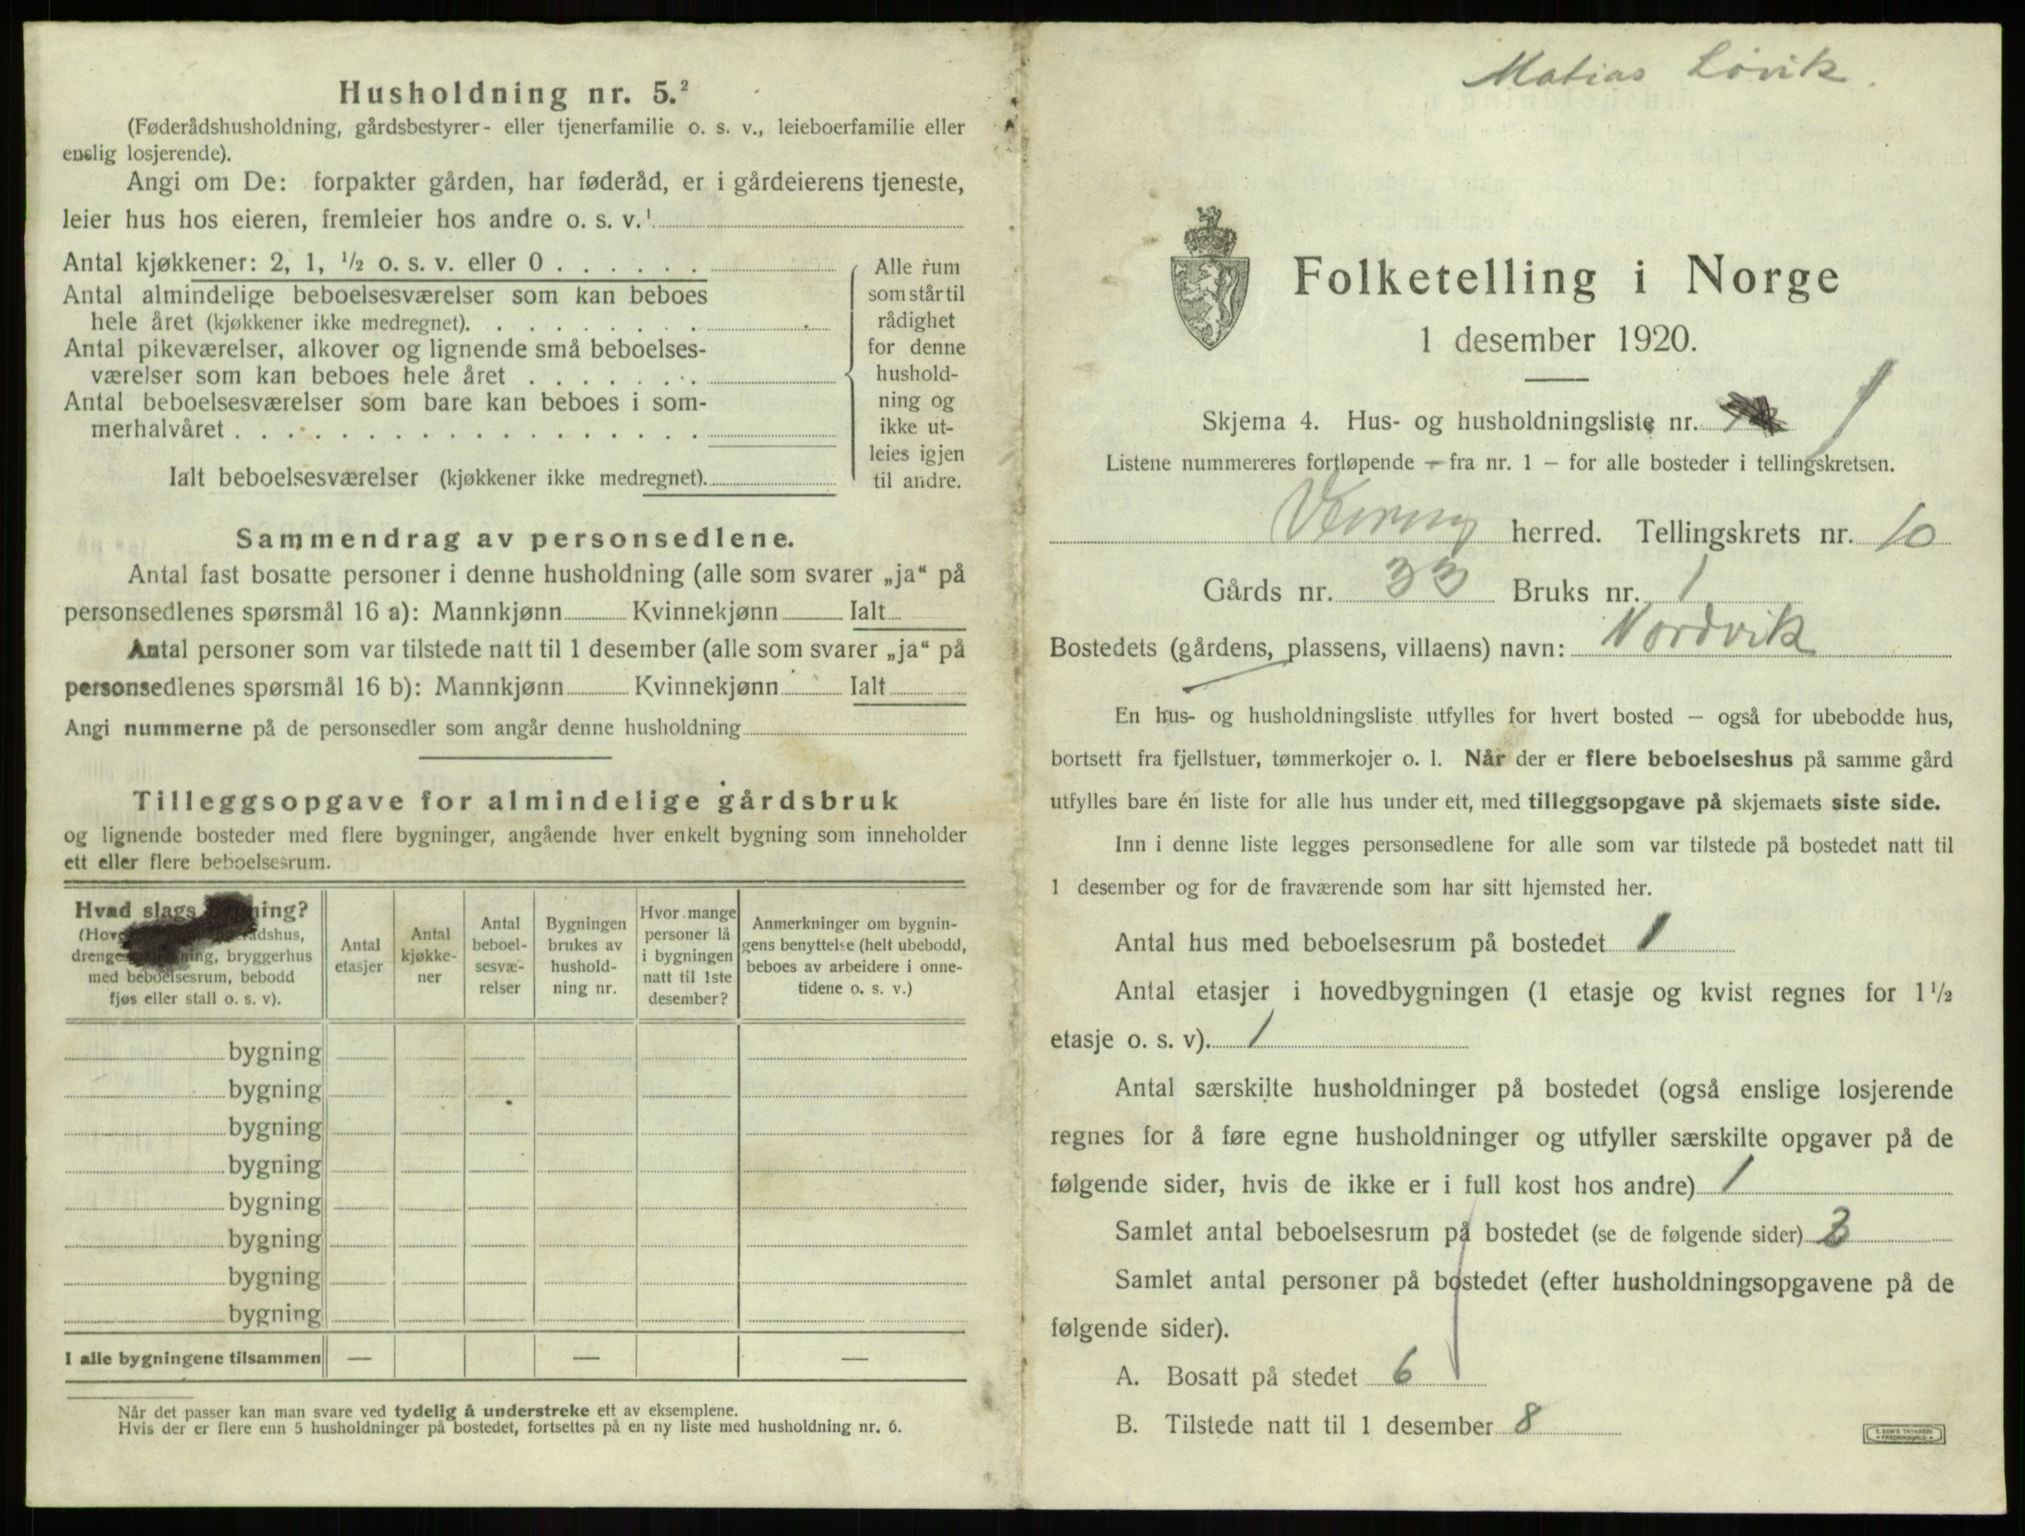 Husholdning nr. 5.²
(Føderådshusholdning, gårdsbestyrer- eller tjenerfamilie o. s. v., leieboerfamilie eller
enslig losjerende).
Angi om De: forpakter gården, har føderåd, er i gårdeierens tjeneste,
leier hus hos eieren, fremleier hos andre o. s. v.¹
Antal kjøkkener: 2, 1, ½ o. s. v. eller 0 . . . . . .
Antal almindelige beboelsesværelser som kan beboes
hele året (kjøkkener ikke medregnet). . . . . . . . .
Antal pikeværelser, alkover og lignende små beboelses-
værelser som kan beboes hele året . . . . . . .
Antal beboelsesværelser som bare kan beboes i som-
merhalvåret . . . . . . . . . . . . . . . . . .
Ialt beboelsesværelser (kjøkkener ikke medregnet).
Alle rum
som står til
rådighet
for denne
hushold-
ning og
ikke ut-
leies igjen
til andre.
Sammendrag av personsedlene.
Antal fast bosatte personer i denne husholdning (alle som svarer „ja“ på
personsedlenes spørsmål 16 a): Mannkjønn Kvinnekjønn Ialt
Antal personer som var tilstede natt til 1 desember (alle som svarer „ja“ på
personsedlenes spørsmål 16 b): Mannkjønn Kvinnekjønn Ialt
Angi nummerne på de personsedler som angår denne husholdning
Tilleggsopgave for almindelige gårdsbruk
og lignende bosteder med flere bygninger, angående hver enkelt bygning som inneholder
ett eller flere beboelsesrum.
Hvad slags
(Hov
med beboelsesrum, bebodd
fjøs eller stall o. s. v).
Antal
etasjer
Antal
kjøkke-
ner
Antal
beboel-
sesvæ-
relser
Bygningen
brukes av
hushold-
ning nr.
Hvor mange
personer lå
i bygningen
natt til 1ste
desember?
Anmerkninger om bygnin-
gens benyttelse (helt ubebodd,
beboes av arbeidere i onne-
tidene o. s. v.)
bygning
bygning
bygning
bygning
bygning
bygning
bygning
bygning
I alle bygningene tilsammen — — —
Når det passer kan man svare ved tydelig å understreke ett av eksemplene.
Hvis der er flere enn 5 husholdninger på bostedet, fortsettes på en ny liste med husholdning nr. 6.
Matias Løvik
Folketelling i Norge
1 desember 1920.
Skjema 4. Hus- og husholdningsliste nr. 1
Listene nummereres fortløpende – fra nr. 1 – for alle bosteder i tellingskretsen.
herred. Tellingskrets nr. 10
Gårds nr. 33 Bruks nr. 1
Bostedets (gårdens, plassens, villaens) navn: Nordvik
En hus- og husholdningsliste utfylles for hvert bosted – også for ubebodde hus,
bortsett fra fjellstuer, tømmerkojer o. l. Når der er flere beboelseshus på samme gård
utfylles bare én liste for alle hus under ett, med tilleggsopgave på skjemaets siste side.
Inn i denne liste legges personsedlene for alle som var tilstede på bostedet natt til
1 desember og for de fraværende som har sitt hjemsted her.
Antal hus med beboelsesrum på bostedet 1
Antal etasjer i hovedbygningen (1 etasje og kvist regnes for 1½
etasje o. s. v). 1
Antal særskilte husholdninger på bostedet (også enslige losjerende
regnes for å føre egne husholdninger og utfyller særskilte opgaver på de
følgende sider, hvis de ikke er i full kost hos andre) 1
Samlet antal beboelsesrum på bostedet (se de følgende sider)
Samlet antal personer på bostedet (efter husholdningsopgavene på de
følgende sider).
A. Bosatt på stedet 6
B. Tilstede natt til 1 desember 8